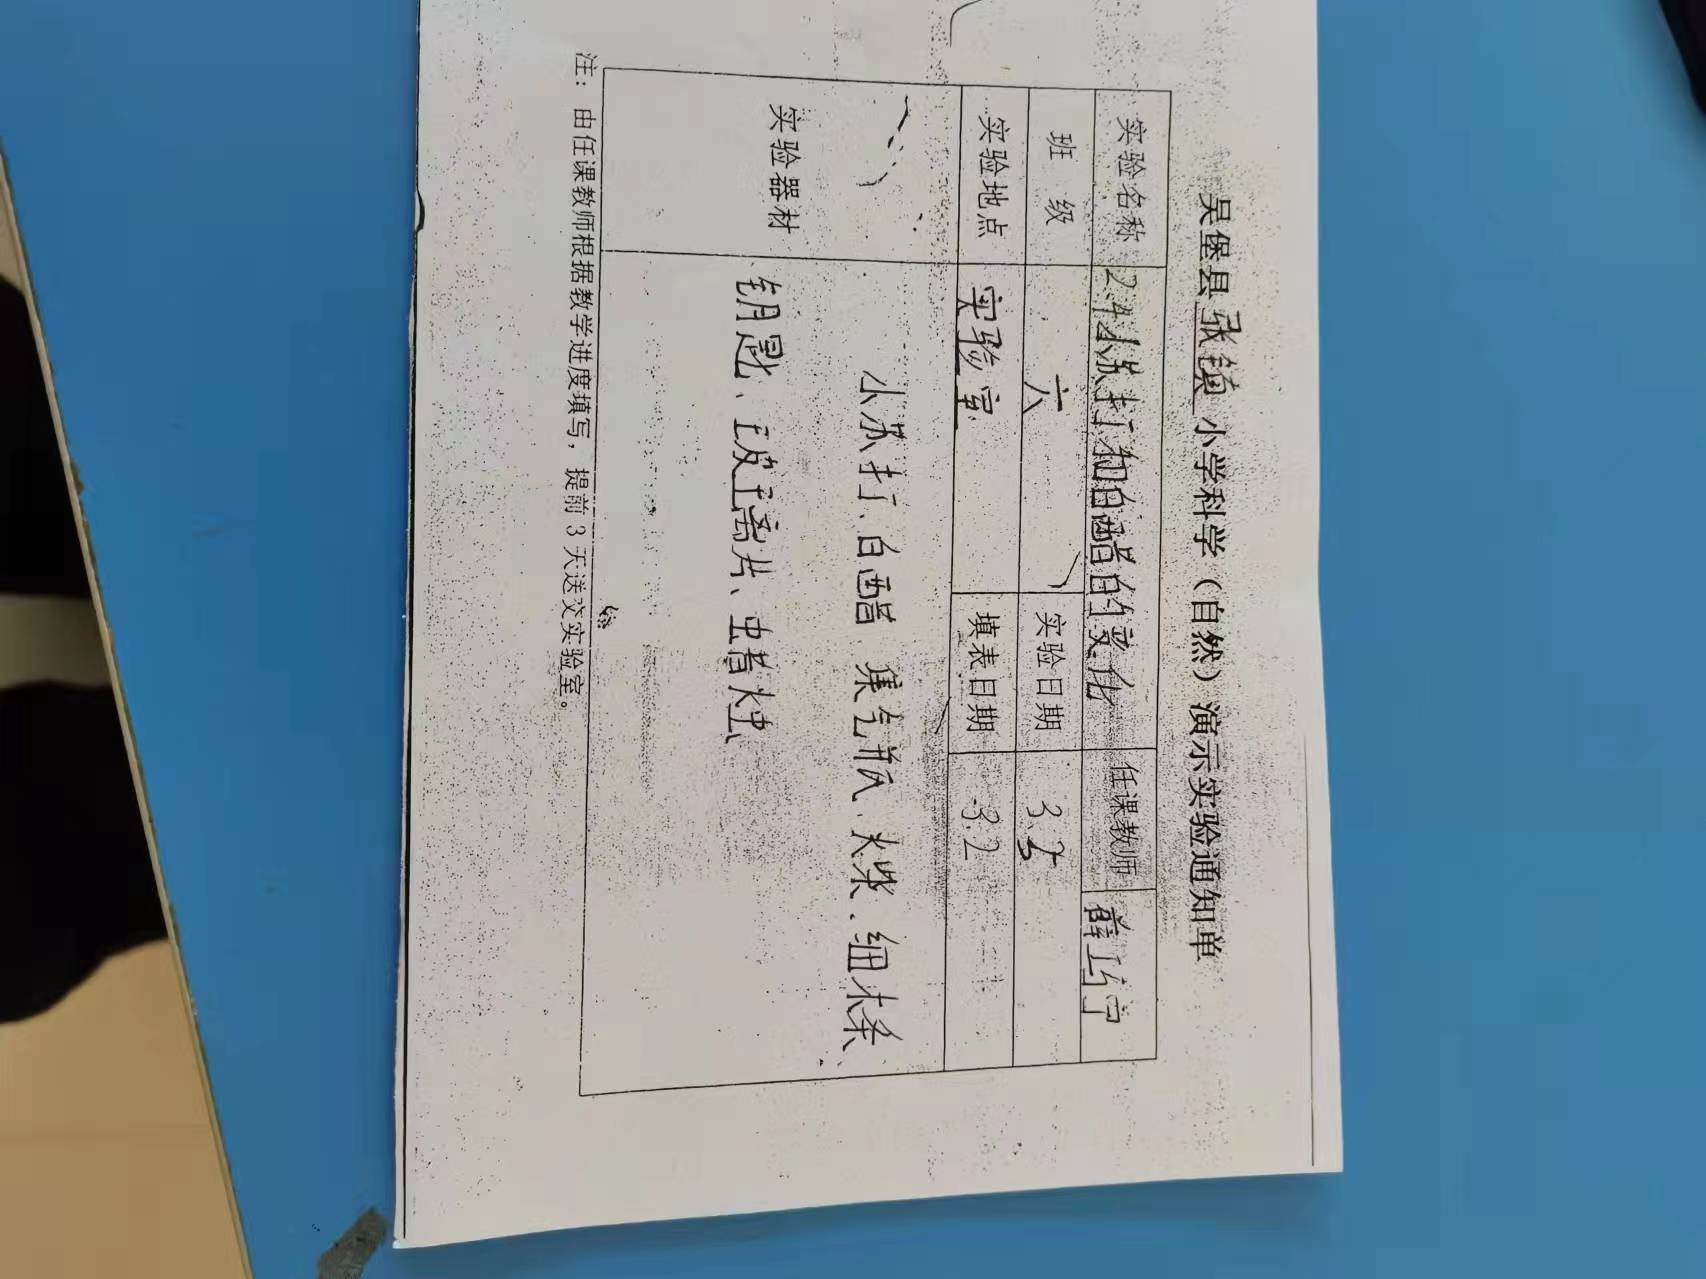 吴堡县张镇小学科学（自然）演示实验通知单
实验名称 2.4小苏打和白醋的变化 任课教师 薛巧宁
班级 六 实验日期 3.3
实验地点 实验室 填表日期 3.2
实验器材 小苏打、白醋、集气瓶、火柴、细木条、
钥匙、玻璃片、蜡烛
注：由任课教师根据教学进度填写，提前3天送交实验室。